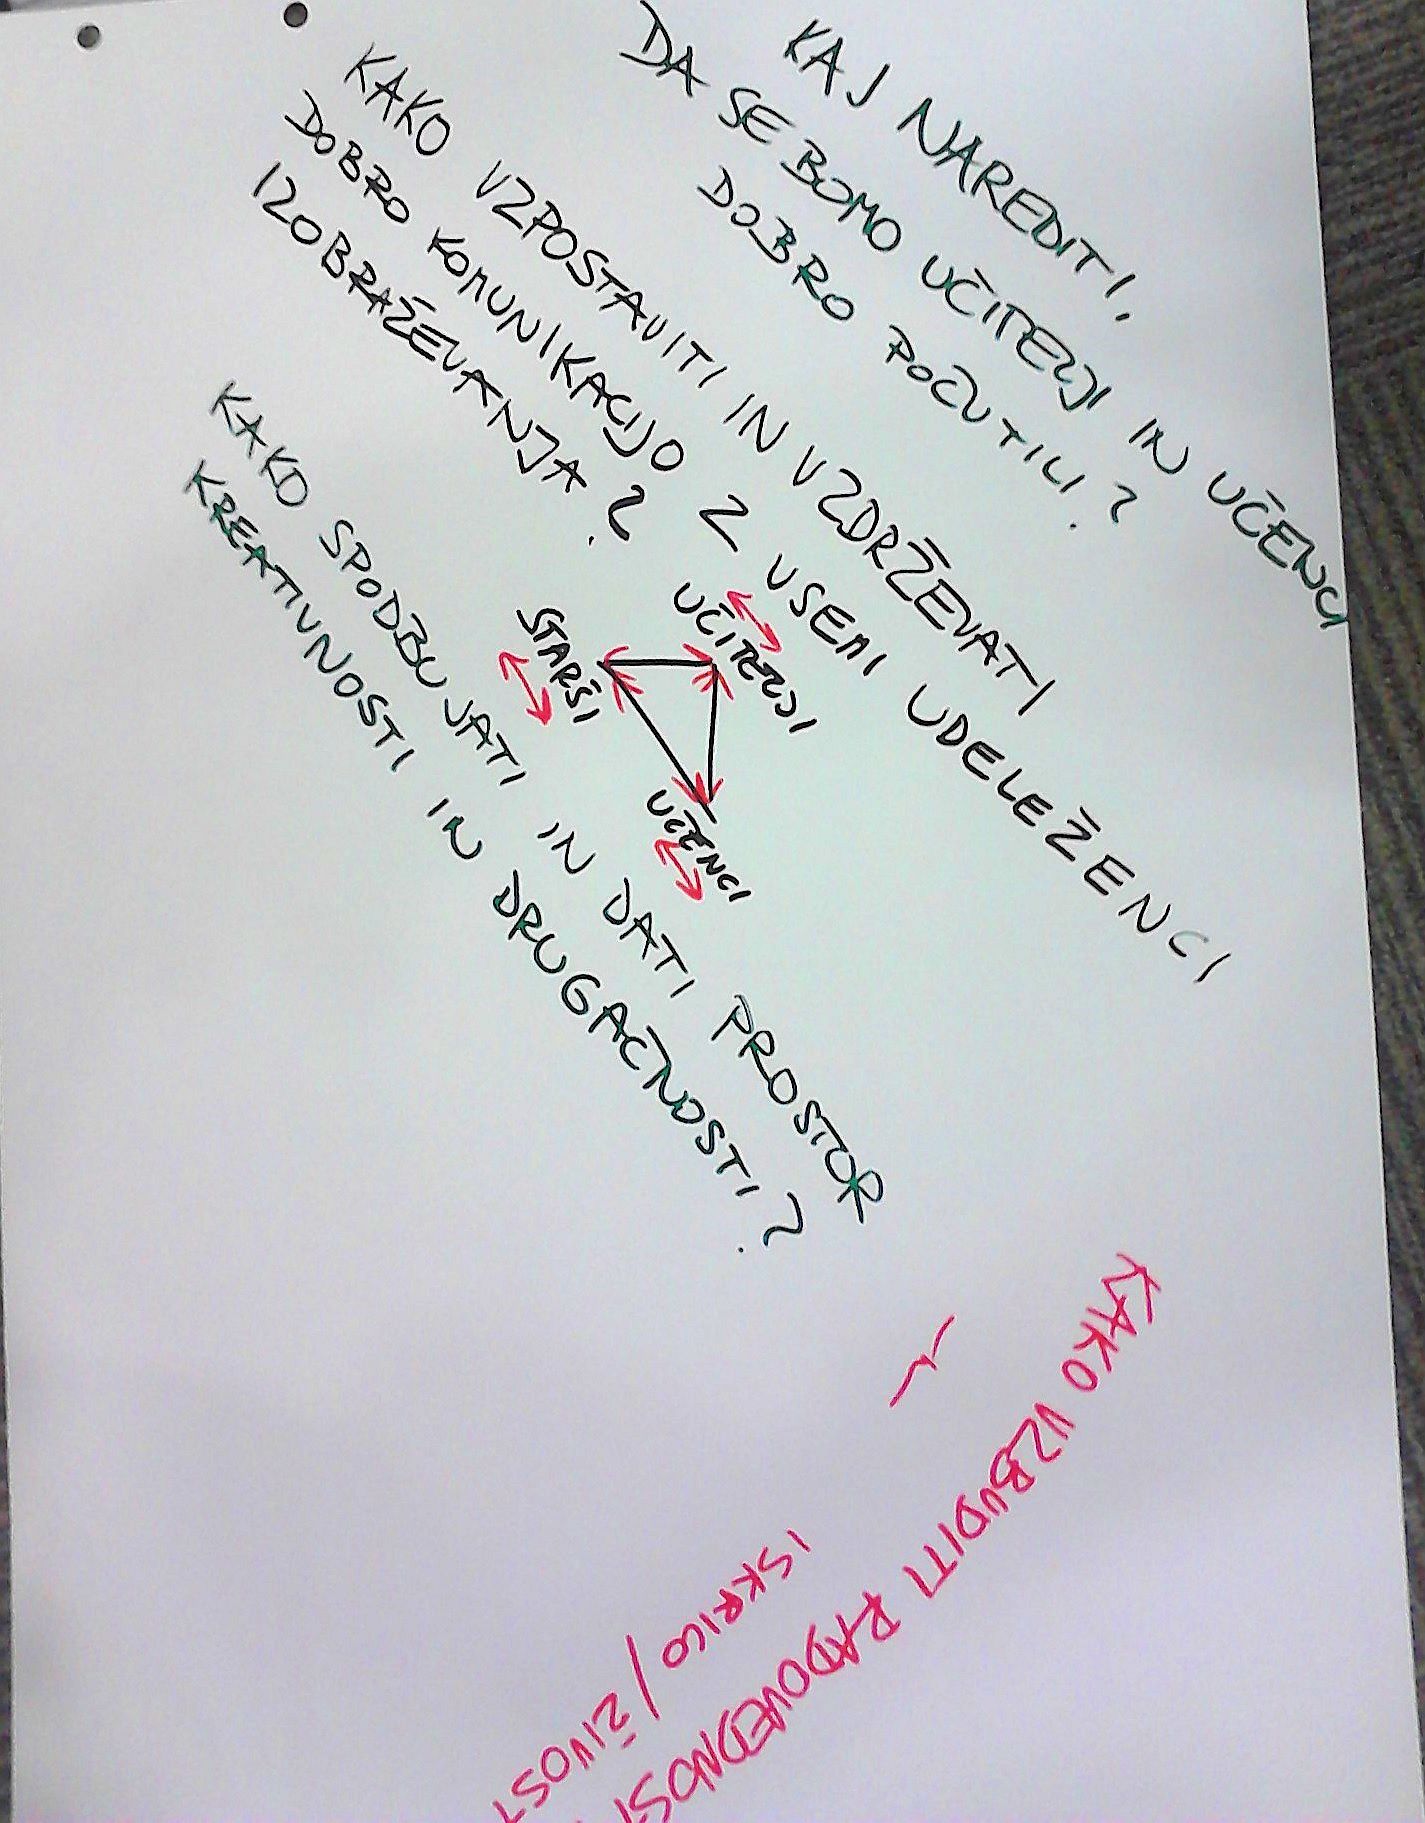 KAJ NAREDITI,
DA SE BOMO UČITELJI IN UČENCI
DOBRO POČUTILI?
KAKO VZPOSTAVITI IN VZDRŽEVATI
DOBRO KOMUNIKACIJO Z VSEMI UDELEŽENCI
IZOBRAŽEVANJA?
UČITELJI
STARŠI
UČENCI
KAKO SPODBUJATI IN DATI PROSTOR
KREATIVNOSTI IN DRUGAČNOSTI?
KAKO VZBUDITI RADOVEDNOST
ISKRICO / ŽIVOST